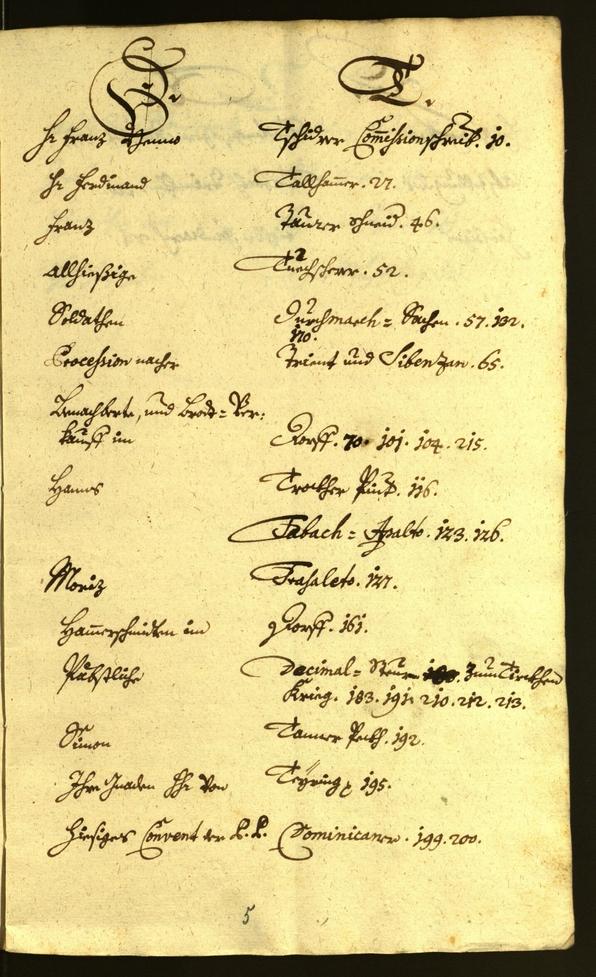 D. T.
H: Franz Tschidrer Com̄issionschreib. 10.
H: Ferdinand Tallham̄er. 27.
Franz Tanzer Schneid. 46.
Allhießige Tuechscherer. 52.
Soldathen Durchmarch= Sachen. 57. 132.
170.
Procession nacher Trient und Sibenzan. 65.
Benachberte, und Brodt= Ver:
kauff im Dorff. 70. 101. 104. 215.
Hanns Trockher Pint. 116.
Tabach= Apalto. 123. 126.
Moriz Trasaleto. 127.
Ham̄erschmidten im Dorff. 161.
Päbstliche Decimal= Steur zum Tirckhen
Krieg. 183. 191. 210. 212. 213.
Simon Tanner Peckh. 192.
Ihre Gnaden Hh: von Teyring 195.
Hiesiges Convent der P. P. Dominicaner. 199. 200.
5